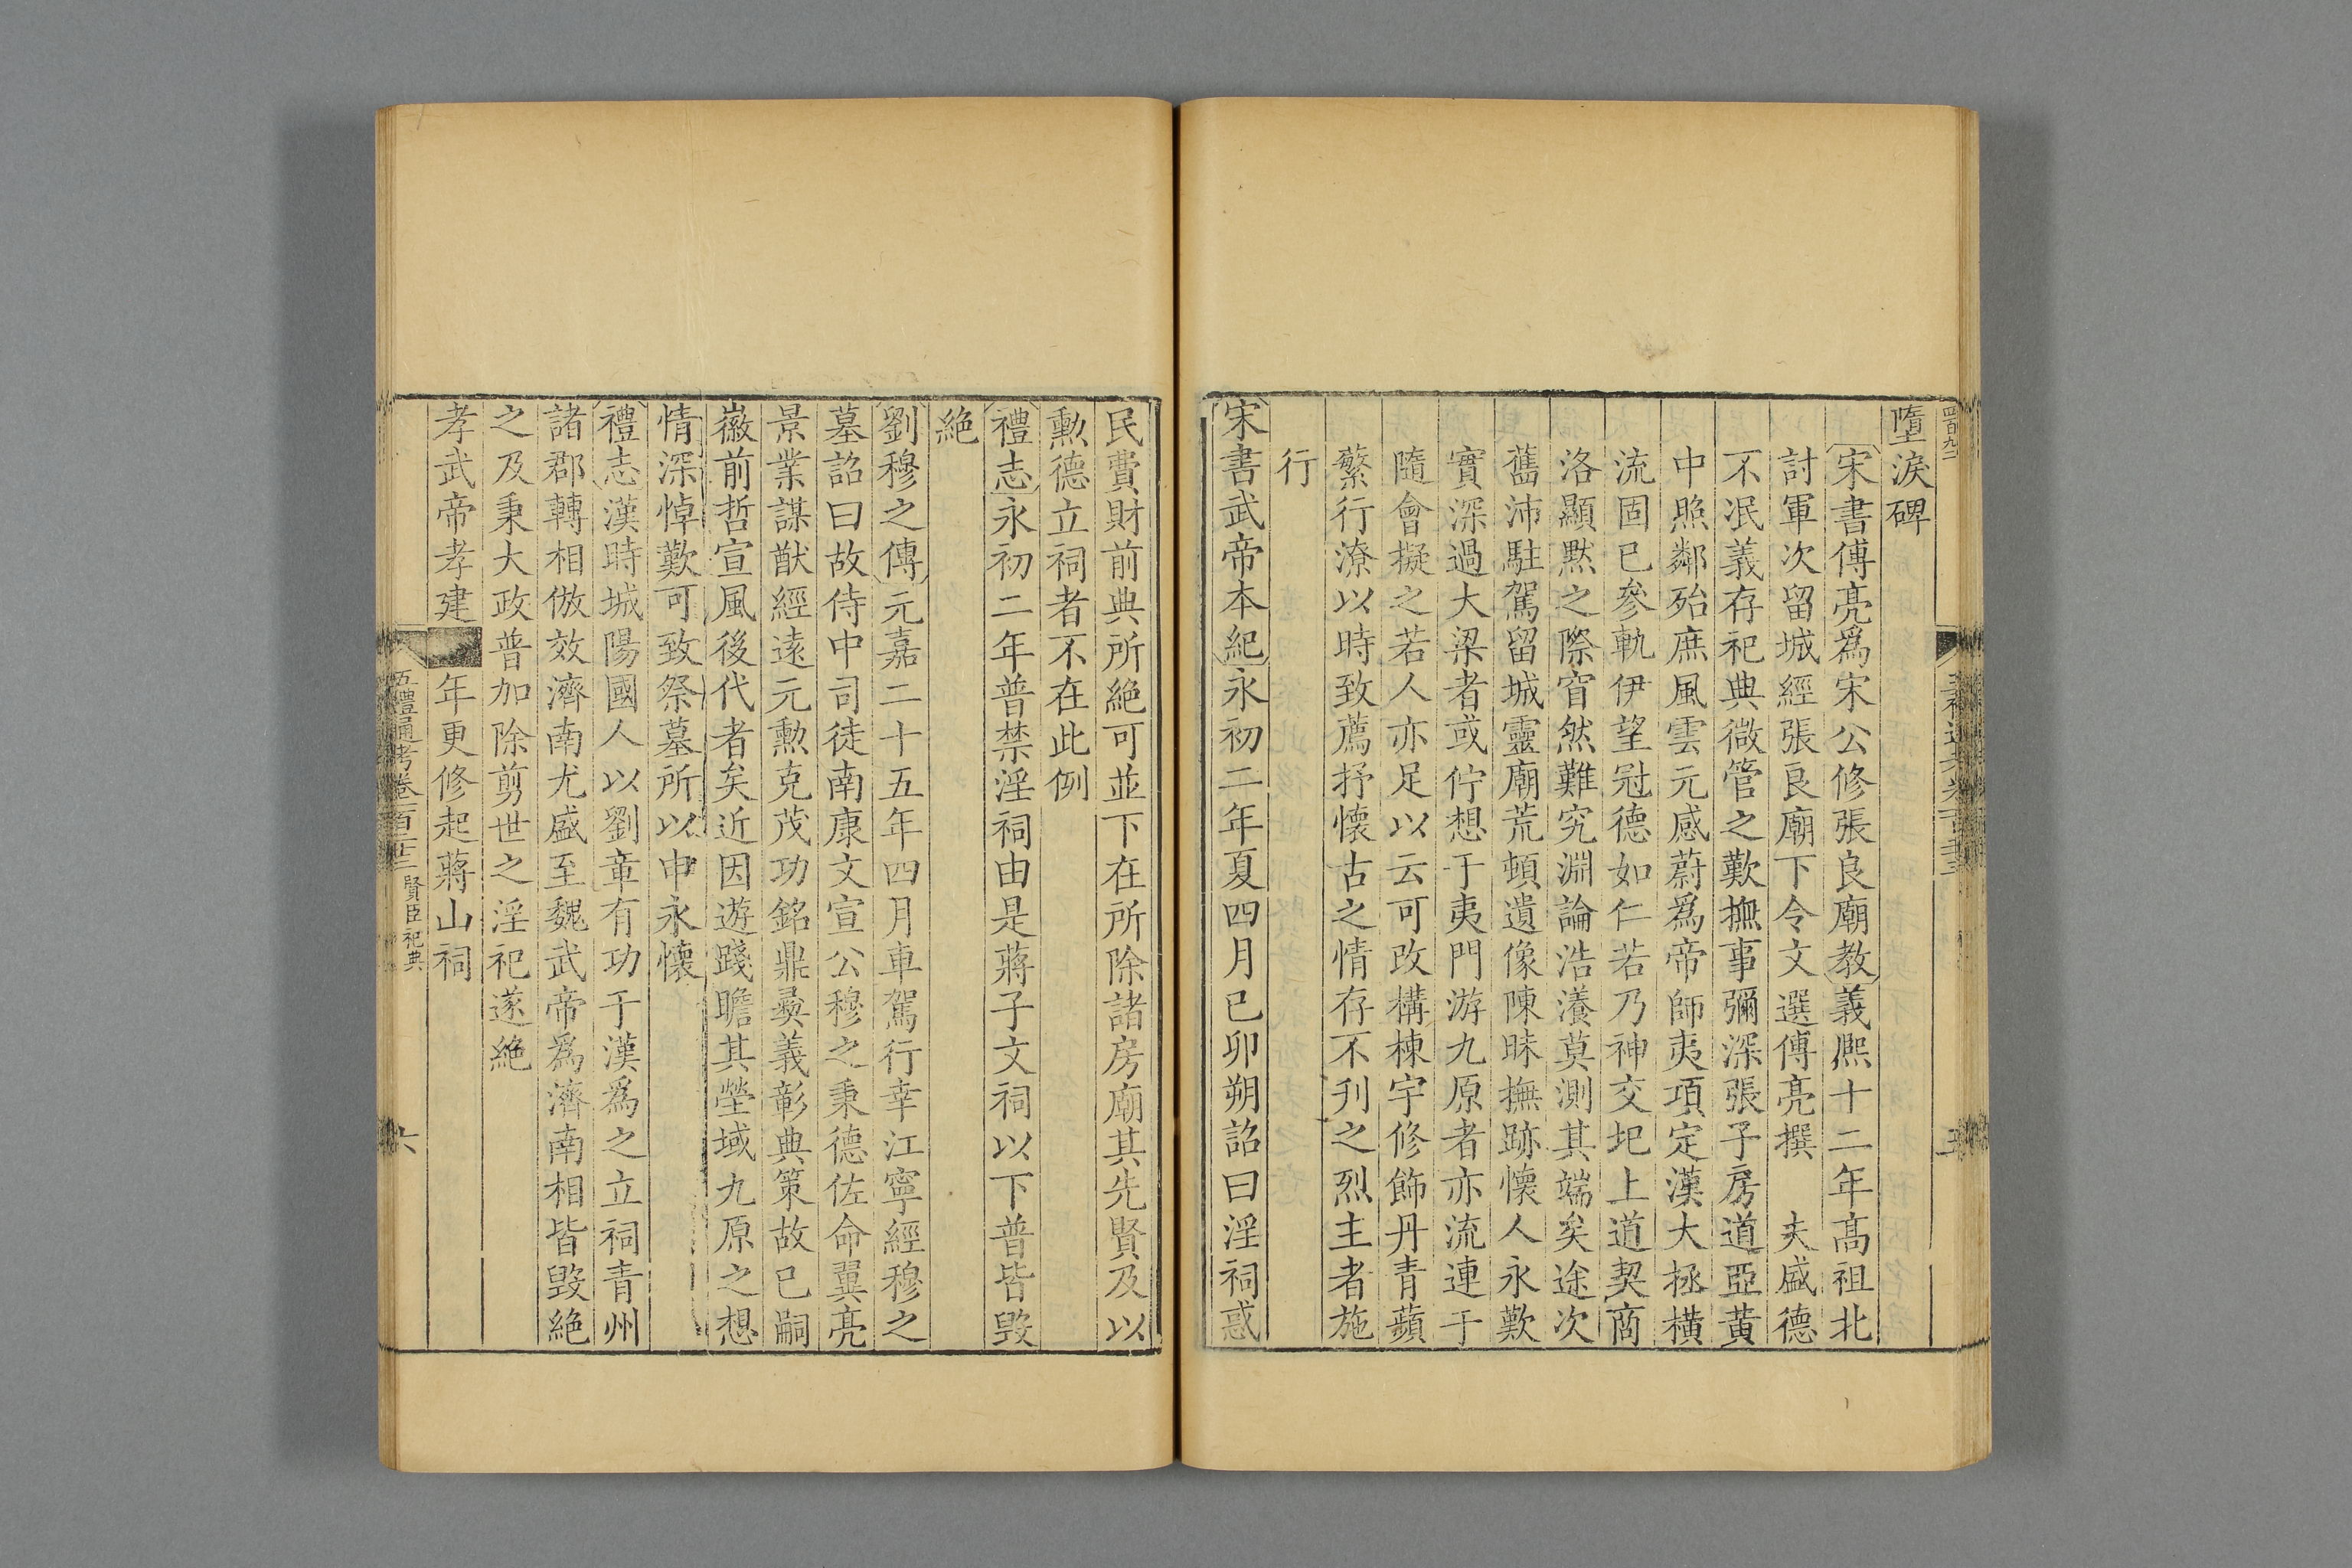 墮淚碑
宋書傅亮爲宋公修張良廟教義熙十二年高祖北
討軍次留城經張良廟下令文選傅亮撰 夫盛德
不泯義存祀典微管之歎撫事彌深張子房道亞黃
中照鄰殆庶風雲元感蔚爲帝師夷項定漢大拯橫
流固已參軌伊望冠德如仁若乃神交圯上道契商
洛顯默之際窅然難究淵論浩瀁莫測其端矣途次
舊沛駐駕留城靈廟荒頓遺像陳昧撫跡懷人永歎
實深過大梁者或佇想于夷門游九原者亦流連于
隨會擬之若人亦足以云可改構棟宇修飾丹青蘋
蘩行潦以時致薦抒懷古之情存不刋之烈主者施
行
宋書武帝本紀永初二年夏四月已卯朔詔曰淫祠惑
民費財前典所絕可並下在所除諸房廟其先賢及以
勲德立祠者不在此例
禮志永初二年普禁淫祠由是蔣子文祠以下普皆毀
絕
劉穆之傳元嘉二十五年四月車駕行幸江寧經穆之
墓詔曰故侍中司徒南康文宣公穆之秉德佐命翼亮
景業謀猷經遠元勲克茂功銘鼎彝義彰典策故已嗣
徽前哲宣風後代者矣近因遊踐瞻其塋域九原之想
情深悼歎可致祭墓所以申永懷
禮志漢時城陽國人以劉章有功于漢爲之立祠青州
諸郡轉相倣效濟南尤盛至魏武帝爲濟南相皆毀絕
之及秉大政普加除剪世之淫祀遂絕
孝武帝孝建 年更修起蔣山祠
五禮通考卷一百二十三 賢臣祀典 六